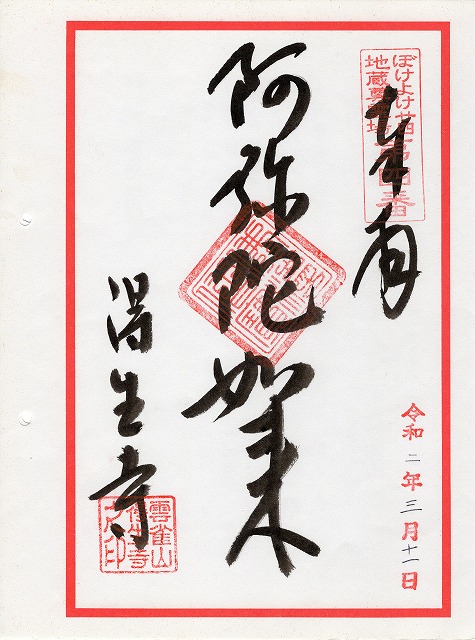 ぼけよけ廿四
地蔵尊霊場
第四番
奉拝
令和二年三月十一日
阿弥陀如来
得生寺
雲雀山
得生寺
之印